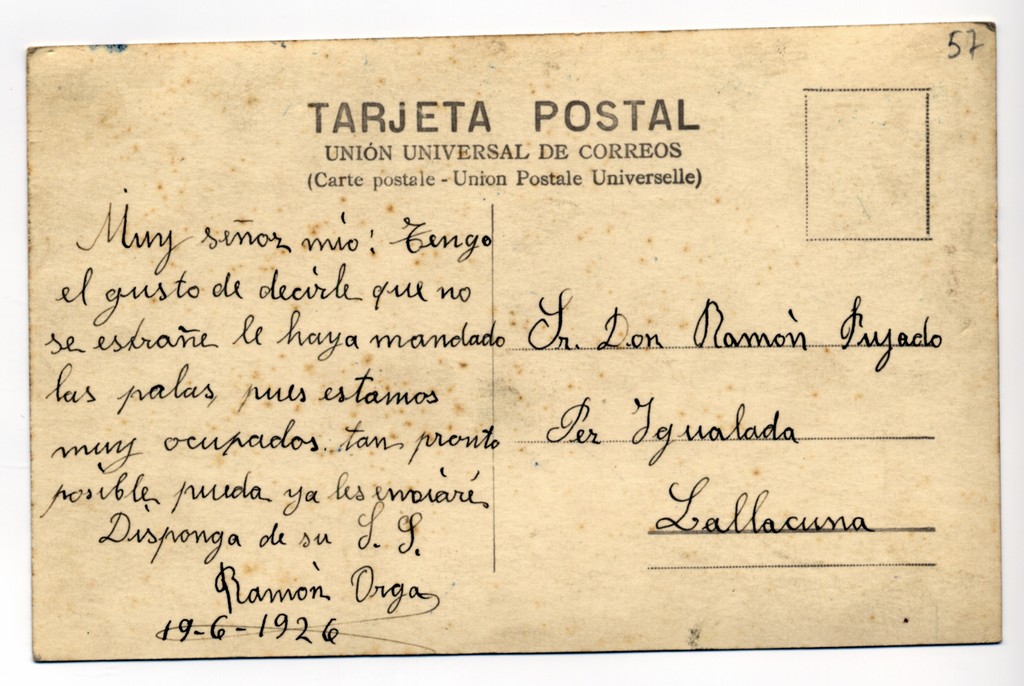 57
TARJETA POSTAL
UNIÓN UNIVERSAL DE CORREOS
(Carte postale - Union Postale Universelle)
Muy señor mio: Tengo
el gusto de decirle que no
se estrañe le haya mandado
las palas, pues estamos
muy ocupados. tan pronto
posible pueda ya les enviaré
Disponga de su S. S.
Ramón Orga
19-6-1926
Sr. Don Ramón Pujado
Per Igualada
Lallacuna